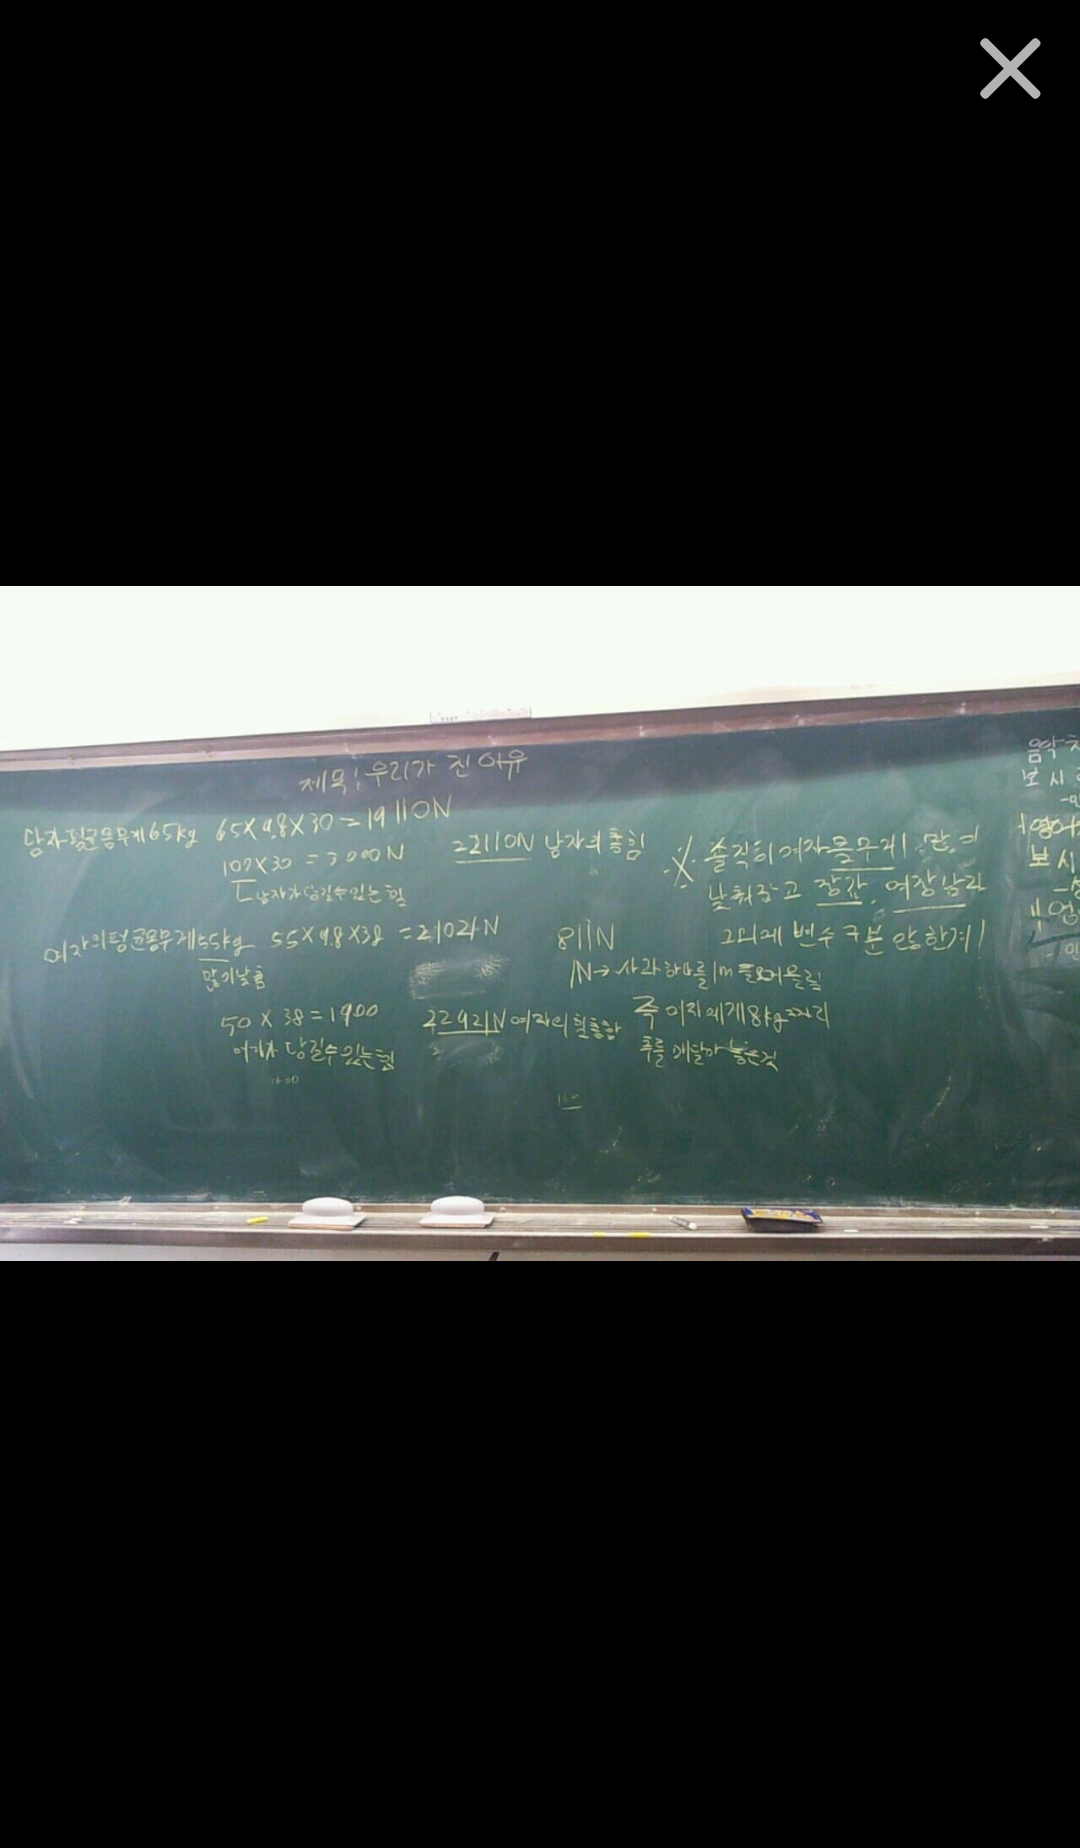 제목: 우리가 진 이유
남자평균몸무게65kg 65×9.8×30=19110N
100×30=3000N
22110N 남자의 총힘
남자가 당길수있는 힘
여자의평균몸무게55kg 55×9.8×38=21021N
많이낮춤
50×38=1900
여자가 당길수있는힘
22921N 여자의 힘총합
솔직히 여자몸무게 많이
낮춰줬고 장갑, 여장남자
그외에 변수 구분 안한거!
811N
1N→사과하나를 1m 들어올릴
즉 여자에게 8kg짜리
추를 매달아 놓은것
음악
보시
영어
보시